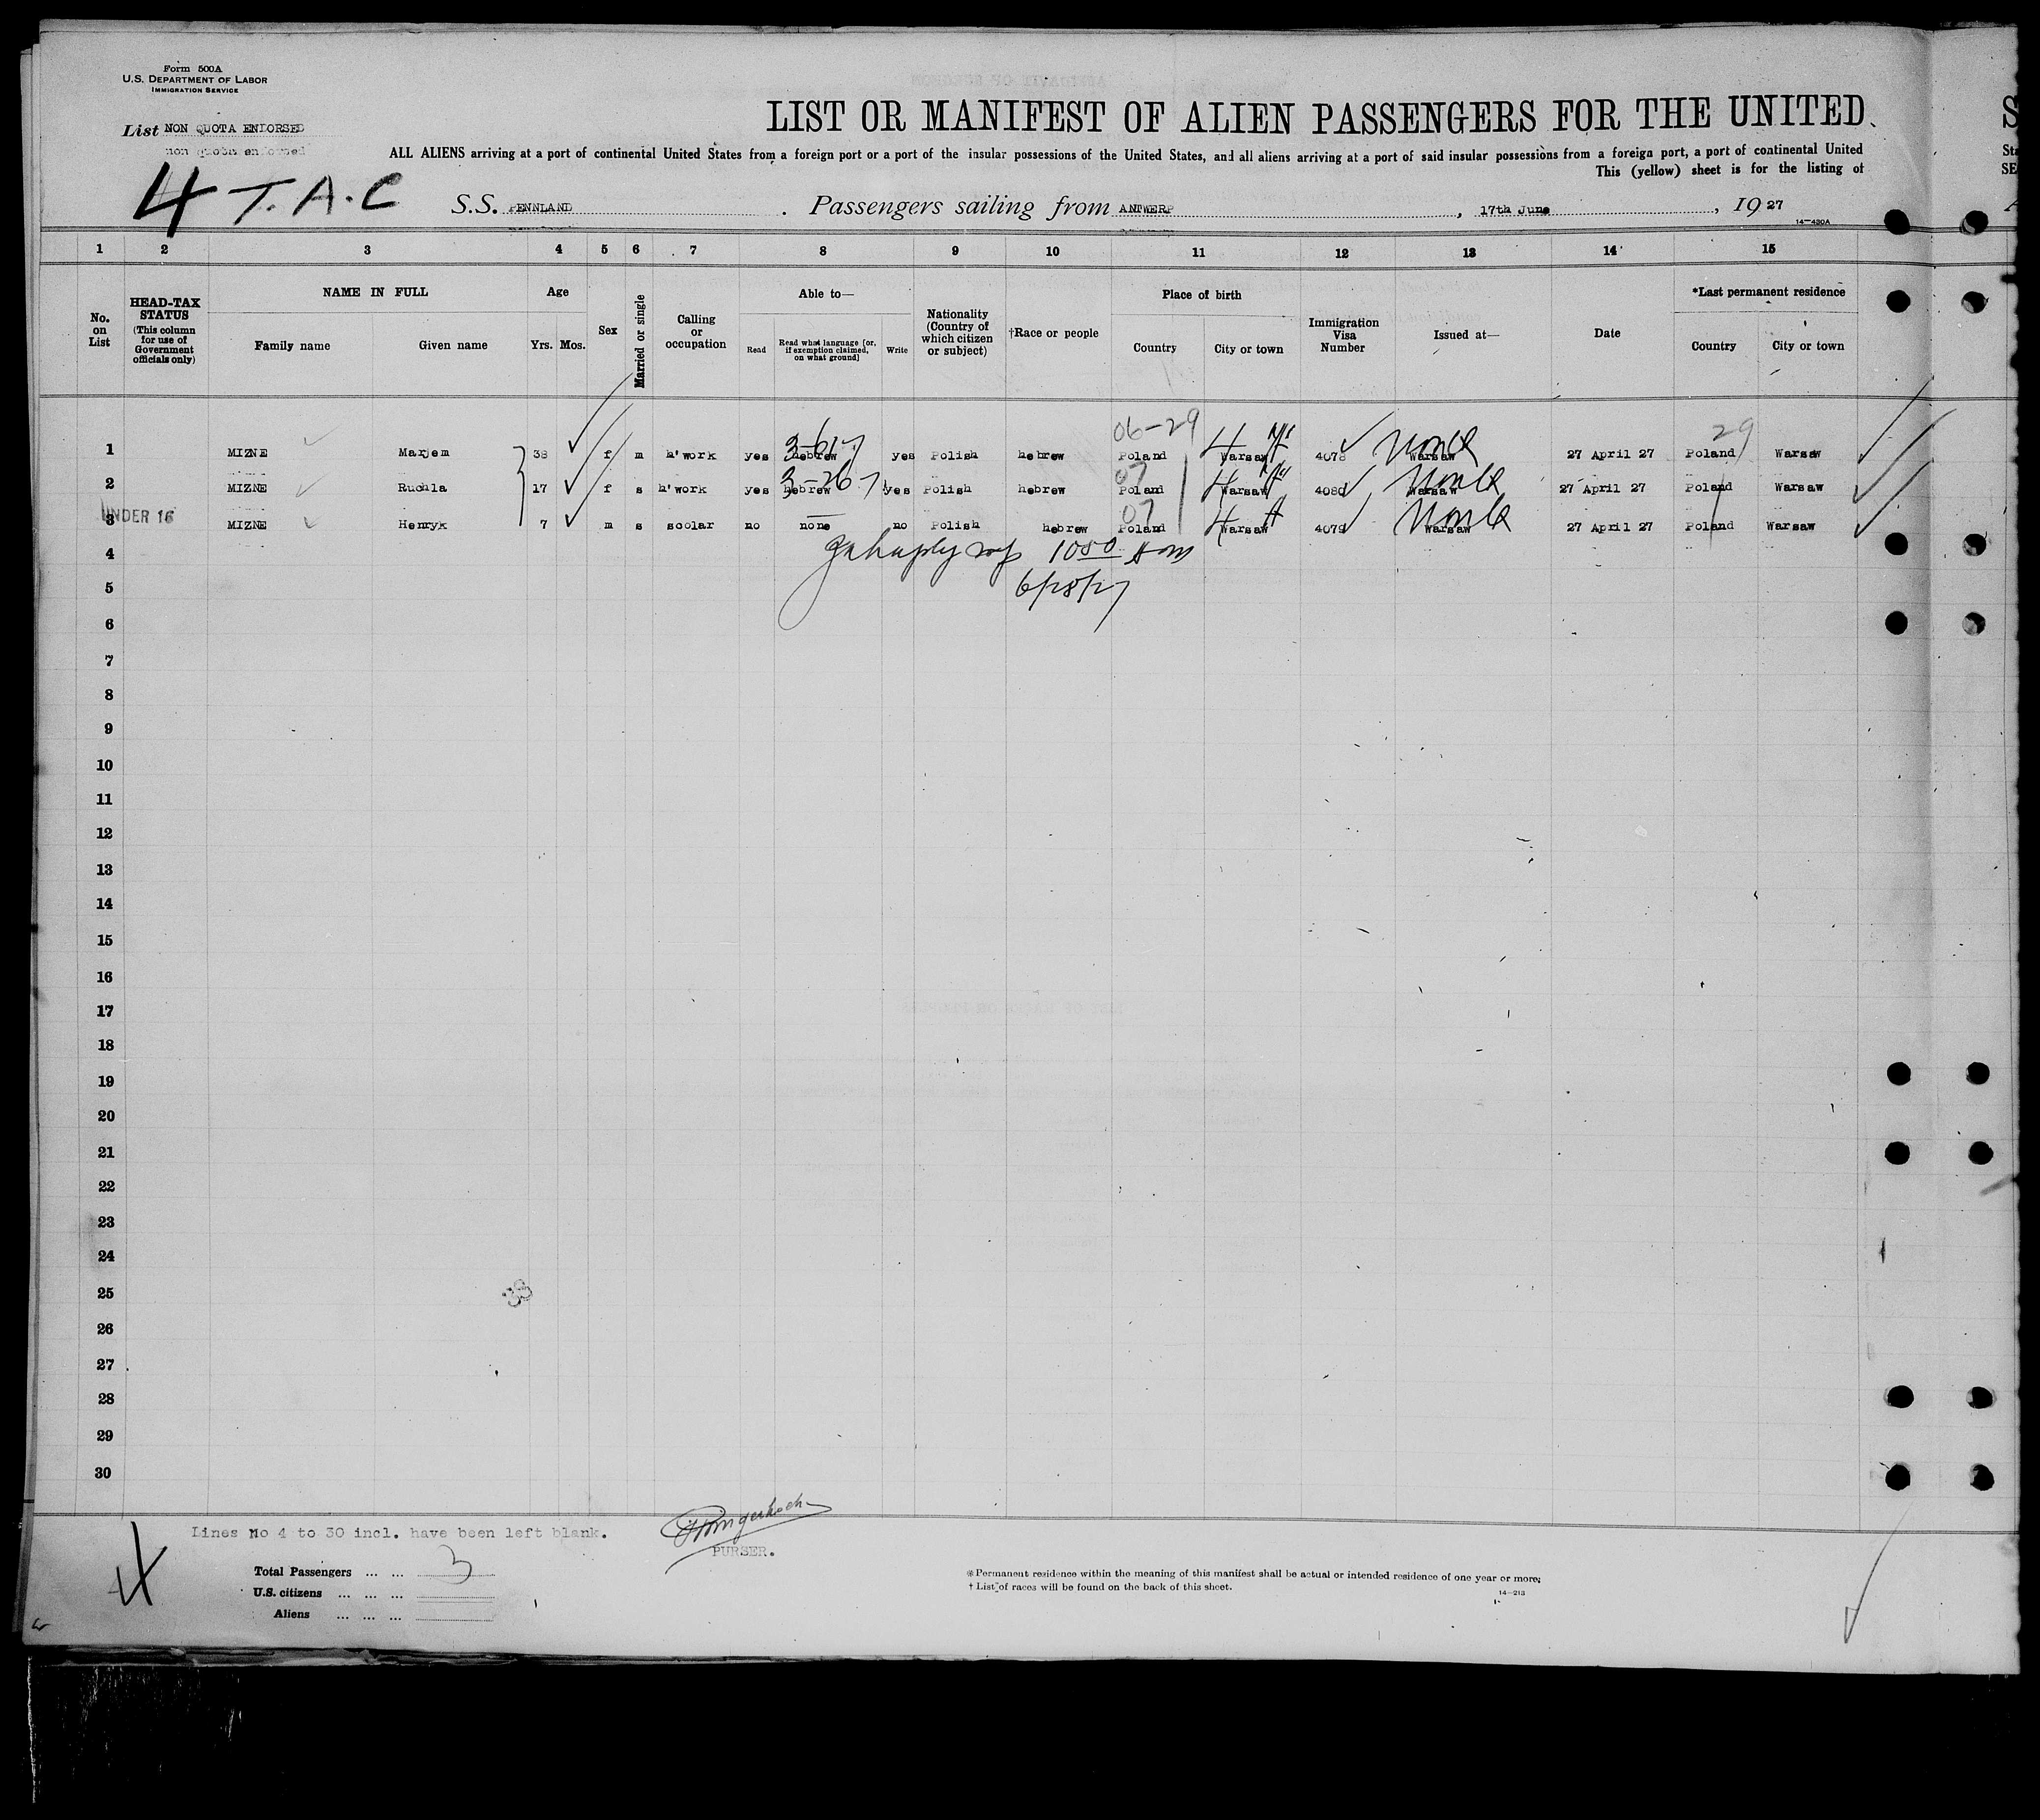 Form 500A
U.S. DEPARTMENT OF LABOR
IMMIGRATION SERVICE
LIST OR MANIFEST OF ALIEN PASSENGERS FOR THE UNITED
List NON QUOTA ENDORSED
non quota endorsed
ALL ALIENS arriving at a port of continental United States from a foreign port or a port of the insular possessions of the United States, and all aliens arriving at a port of said insular possessions from a foreign port, a port of continental United
This (yellow) sheet is for the listing of
4 T.A.C
S.S. PENNLAND . Passengers sailing from ANTWERP , 17th June , 19 27
14—430A
1 2 3 4 5 6 7 8 9 10 11 12 13 14 15
No. on List
HEAD-TAX STATUS (This column for use of Government officials only)
NAME IN FULL
Family name Given name
Age
Yrs. Mos.
Sex
Married or single
Calling or occupation
Able to—
Read Read what language [or, if exemption claimed, on what ground] Write
Nationality (Country of which citizen or subject)
†Race or people
Place of birth
Country City or town
Immigration Visa Number
Issued at—
Date
*Last permanent residence
Country City or town
06-29 29
1 MIZNE Marjem 38 f m h'work yes hebrew yes Polish hebrew Poland 4 Warsaw 4078 Warsaw 27 April 27 Poland Warsaw
07
2 MIZNE Ruchla 17 f s h'work yes hebrew yes Polish hebrew Poland 4 Warsaw 4080 Warsaw 27 April 27 Poland Warsaw
UNDER 16
07
3 MIZNE Henryk 7 m s scolar no none no Polish hebrew Poland 4 Warsaw 4079 Warsaw 27 April 27 Poland Warsaw
4
5
6/28/27
6
7
8
9
10
11
12
13
14
15
16
17
18
19
20
21
22
23
24
25
26
27
28
29
30
Lines No 4 to 30 incl. have been left blank.
PURSER.
4
Total Passengers ... ... 3
U.S. citizens ... ... ...
Aliens ... ... ...
*Permanent residence within the meaning of this manifest shall be actual or intended residence of one year or more.
† List of races will be found on the back of this sheet.
14—213